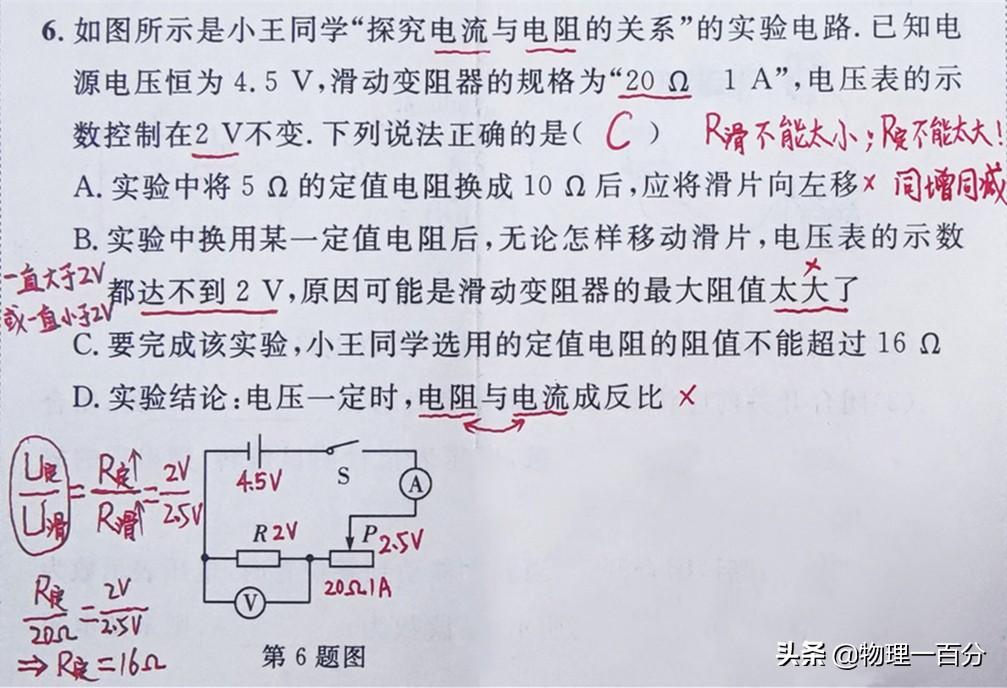 6. 如图所示是小王同学“探究电流与电阻的关系”的实验电路. 已知电
源电压恒为 4.5 V,滑动变阻器的规格为“20 Ω 1 A”,电压表的示
数控制在2 V不变. 下列说法正确的是( C ) R滑不能太小;R定不能太大!
A. 实验中将 5 Ω 的定值电阻换成 10 Ω 后,应将滑片向左移× 同增同减
B. 实验中换用某一定值电阻后,无论怎样移动滑片,电压表的示数
一直大于2V
都达不到 2 V,原因可能是滑动变阻器的最大阻值太大了 ×
或一直小于2V
C. 要完成该实验,小王同学选用的定值电阻的阻值不能超过 16 Ω
D. 实验结论:电压一定时,电阻与电流成反比 ×
U定/U滑 = R定↑/R滑↑ = 2V/2.5V
4.5V S A
R 2V P 2.5V
20Ω1A
V
R定/20Ω = 2V/2.5V
⇒ R定=16Ω
第 6 题图
头条 @物理一百分